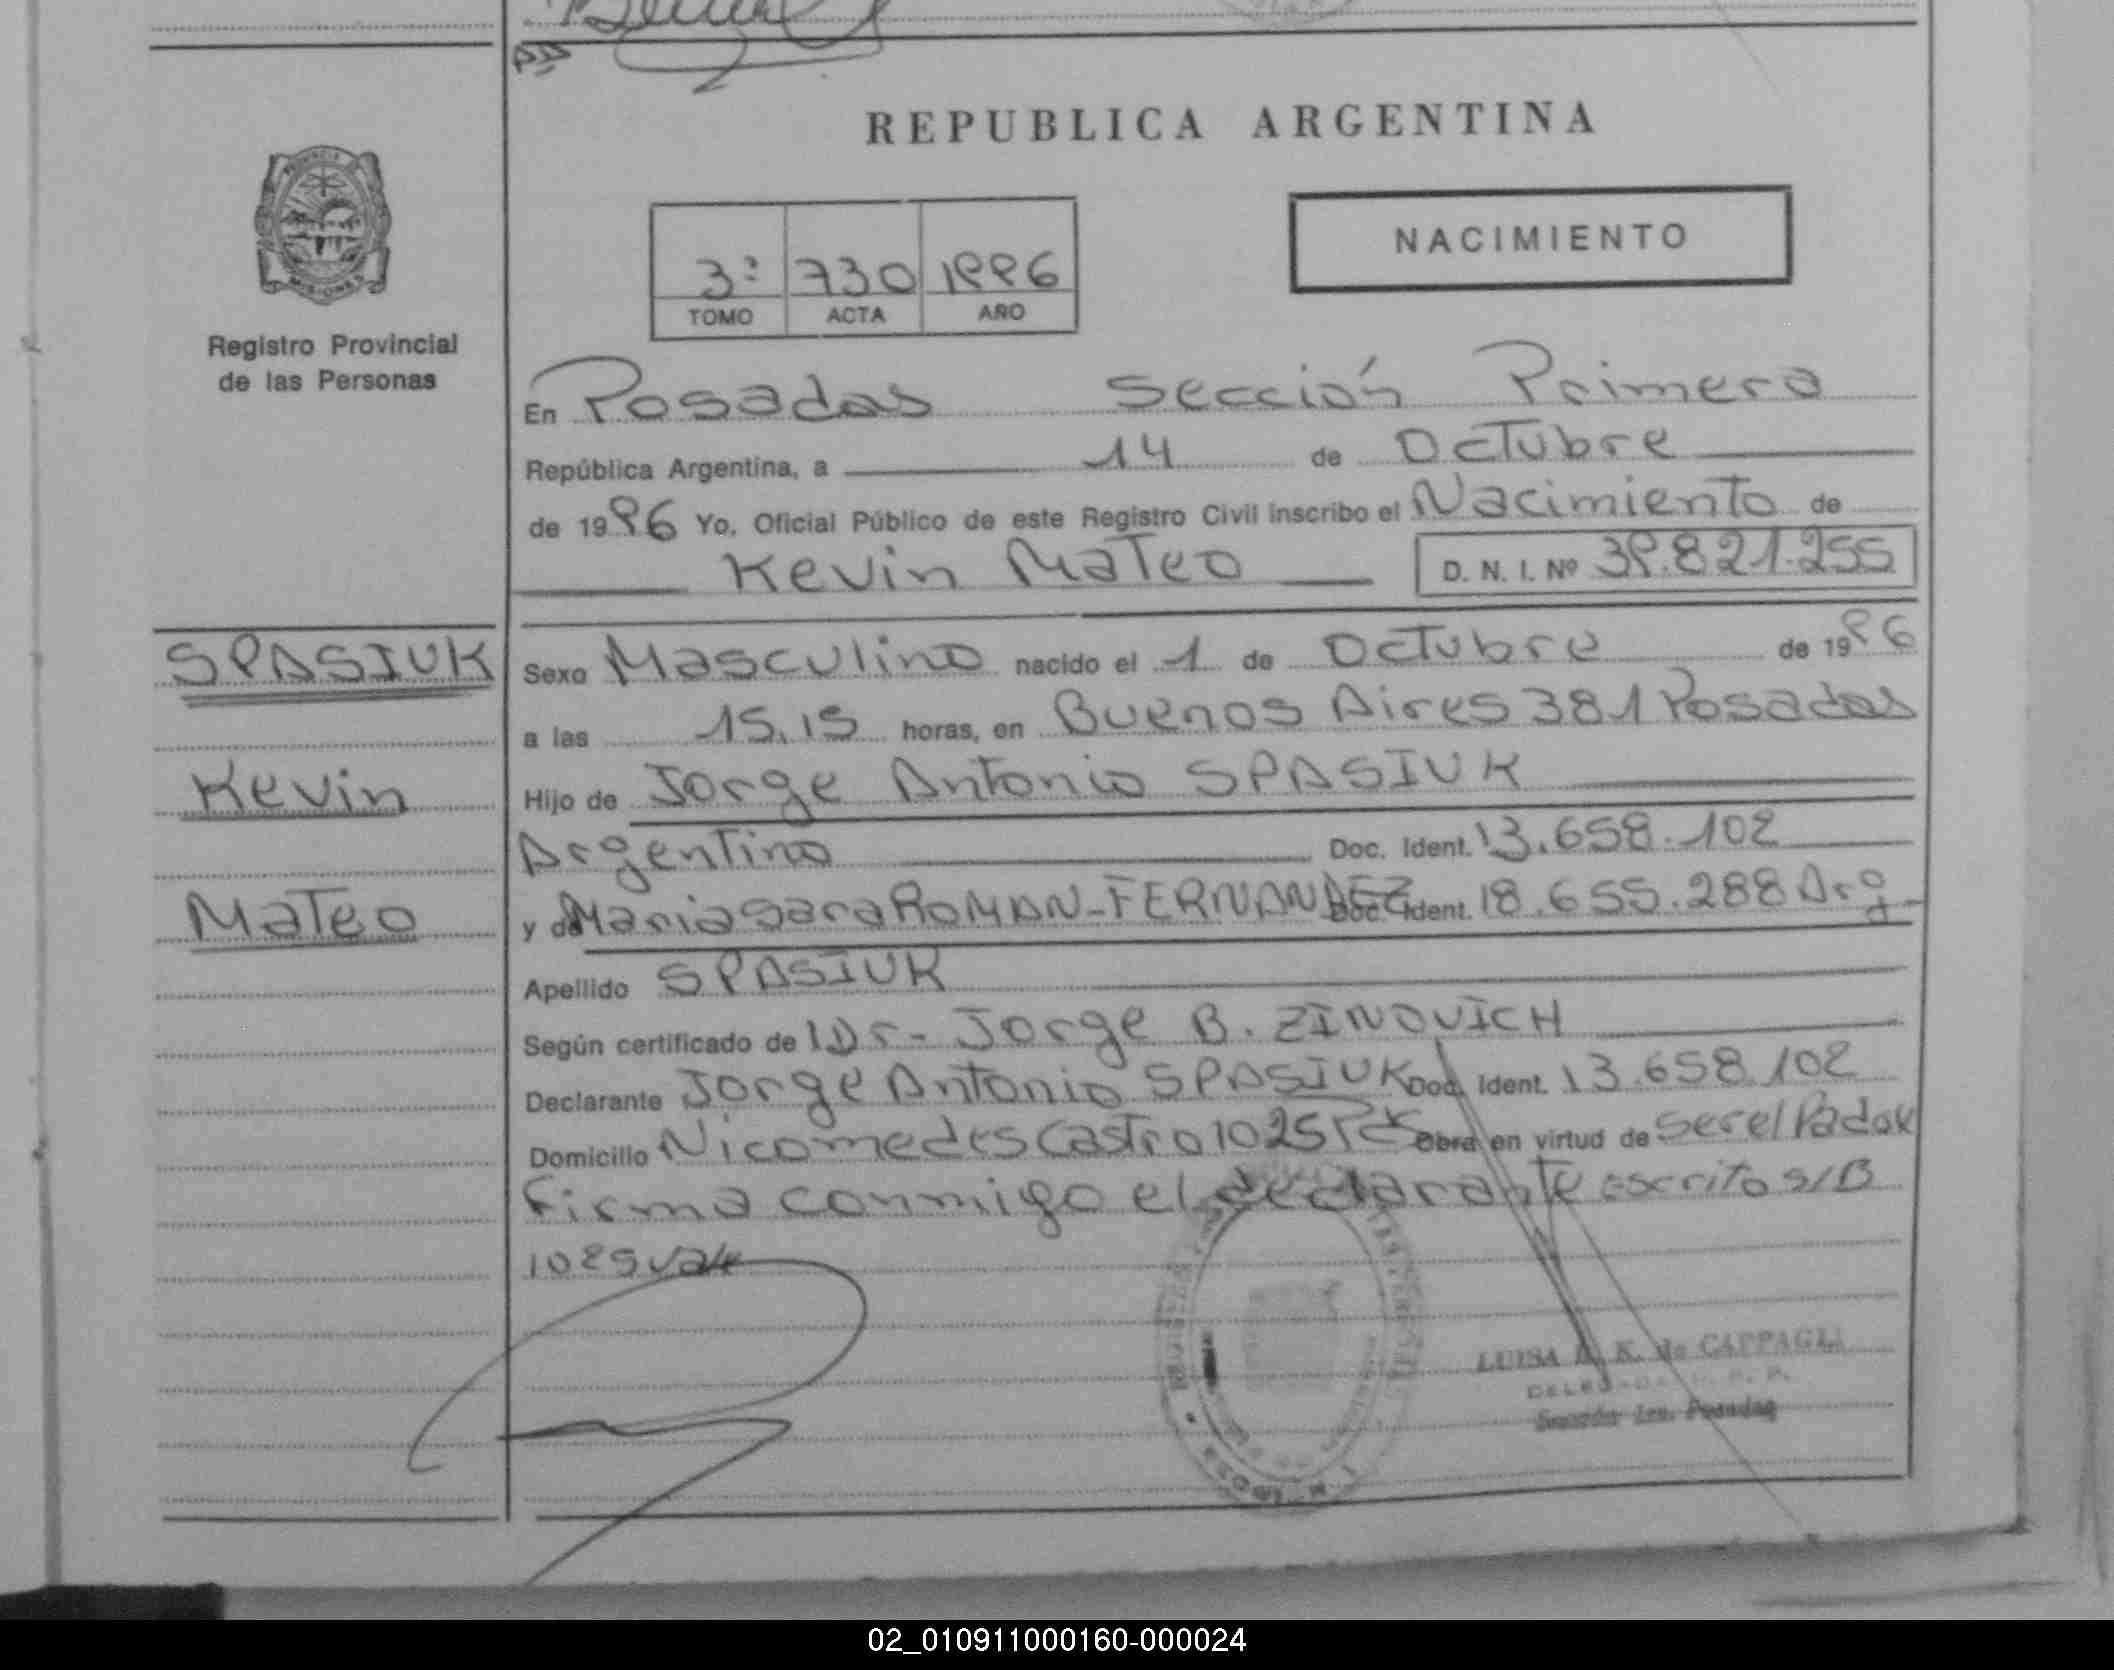 REPUBLICA ARGENTINA
PROVINCIA
MISIONES
Registro Provincial
de las Personas
3º 730 1996
TOMO ACTA AÑO
NACIMIENTO
En Posadas Sección Primera
República Argentina, a 14 de Octubre
de 1996 Yo, Oficial Público de este Registro Civil inscribo el Nacimiento de
Kevin Mateo D. N. I. Nº 39.821.255
SPASIUK
Kevin
Mateo
Sexo Masculino nacido el 1 de Octubre de 1996
a las 15,15 horas, en Buenos Aires 381 Posadas
Hijo de Jorge Antonio SPASIUK
Argentino Doc. Ident. 13.658.102
y de Maria Sara ROMAN-FERNANDEZ Doc. Ident. 18.655.288 Arg
Apellido SPASIUK
Según certificado de Dr- Jorge B. ZINOVICH
Declarante Jorge Antonio SPASIUK Doc. Ident. 13.658.102
Domicilio Nicomedes Castro 1025 Pdas Obra en virtud de ser el Padre
Firma conmigo el declarante escrito s/B
1025 vale
LUISA K. de CAPPAGLI
Sección 1ra. Posadas
02_010911000160-000024